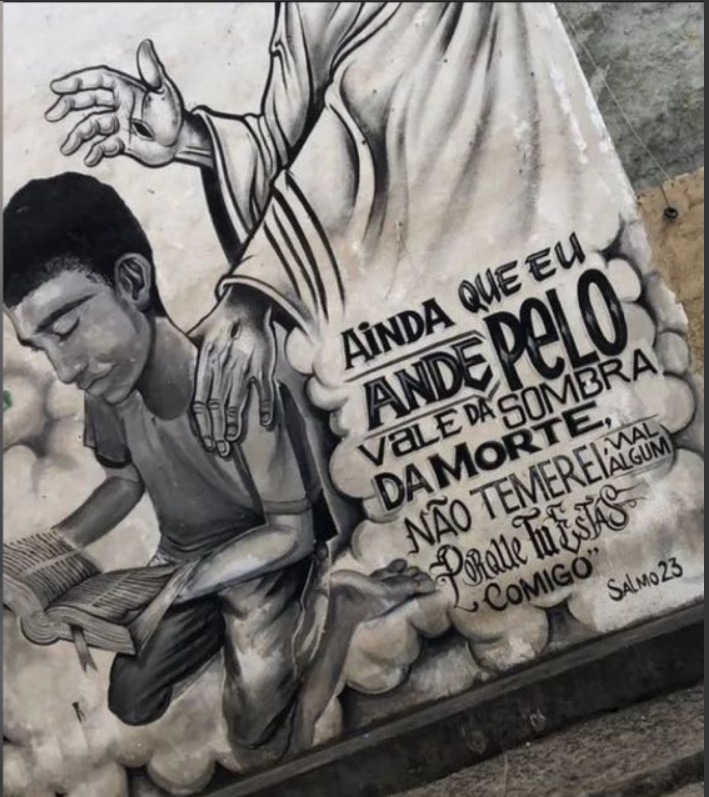 AINDA QUE EU
ANDE PELO
VALE DA SOMBRA
DA MORTE,
NÃO TEMEREI MAL ALGUM
PORQUE TU ESTÁS
COMIGO"
SALMO 23